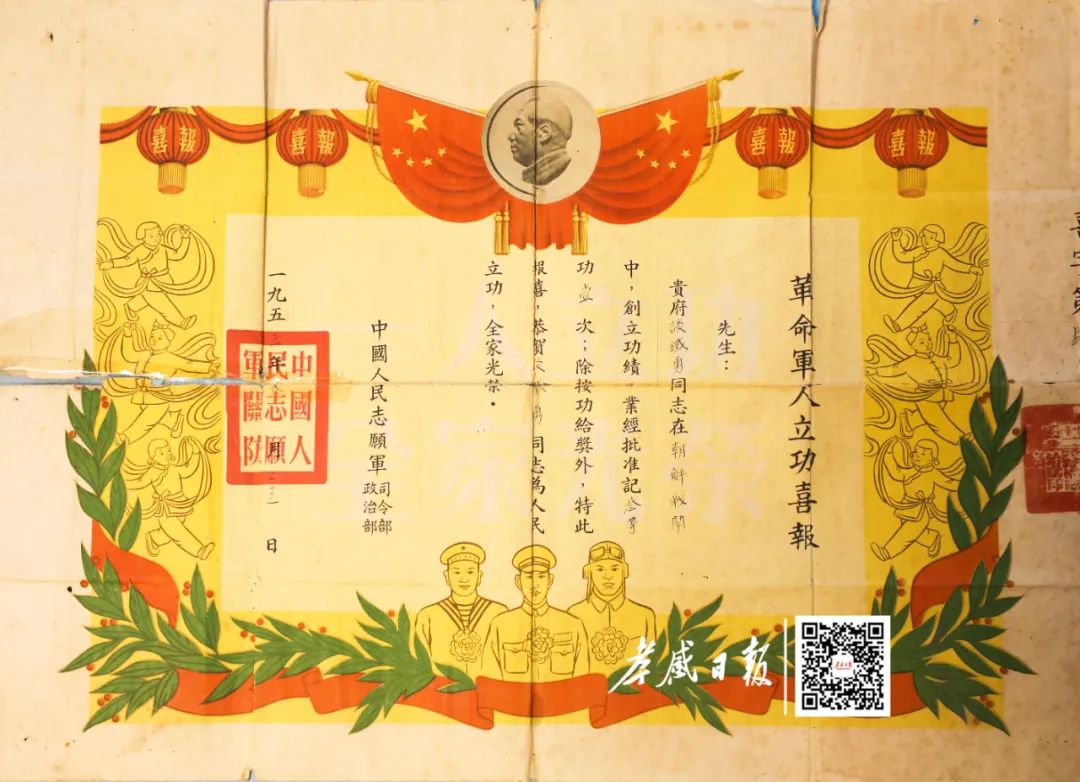 喜報
喜報
喜報
喜報
革命軍人立功喜報
先生：
貴府談鐵勇同志在朝鮮戰鬥
中，創立功績，業經批准記叁等
功壹次；除按功給獎外，特此
報喜，恭賀 同志為人民
立功，全家光荣。
中國人民志願軍
司令部
政治部
一九五 年 月 日
中國人
民志願
軍關防
喜字第
孝感日报